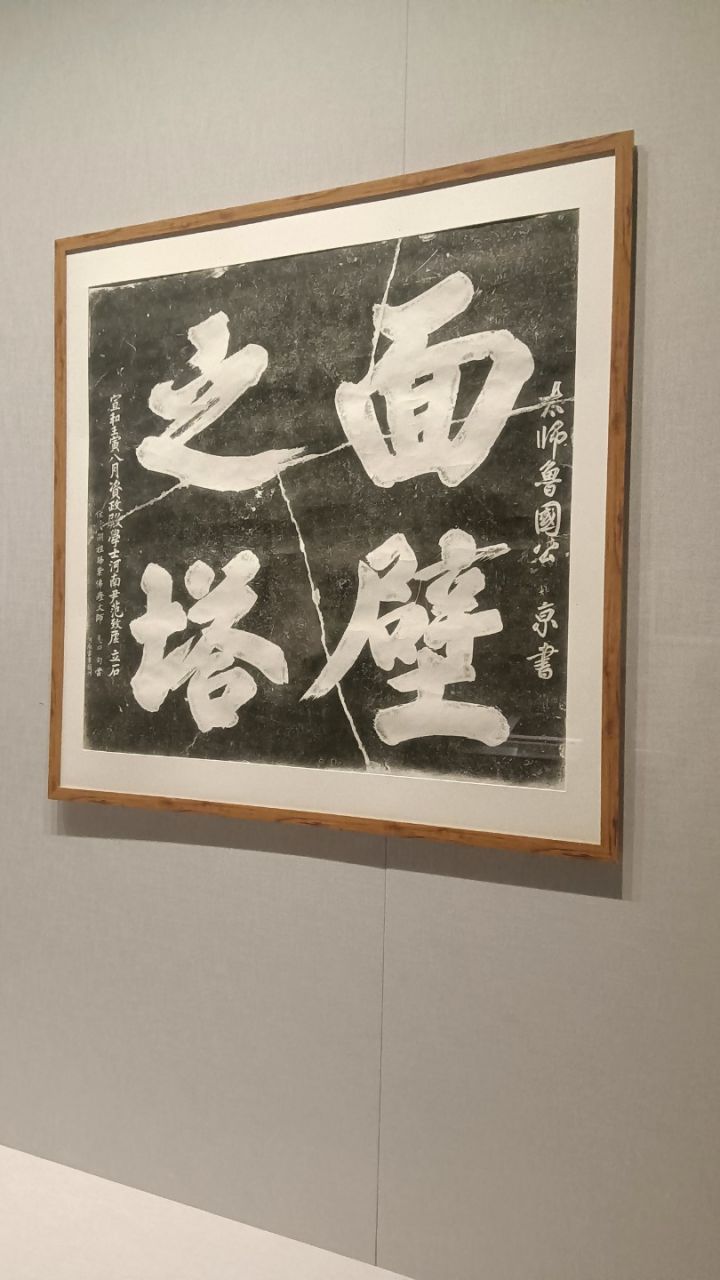 太師魯國公京書
面壁
之塔
宣和壬寅八月資政殿學士河南尹范致虛立石